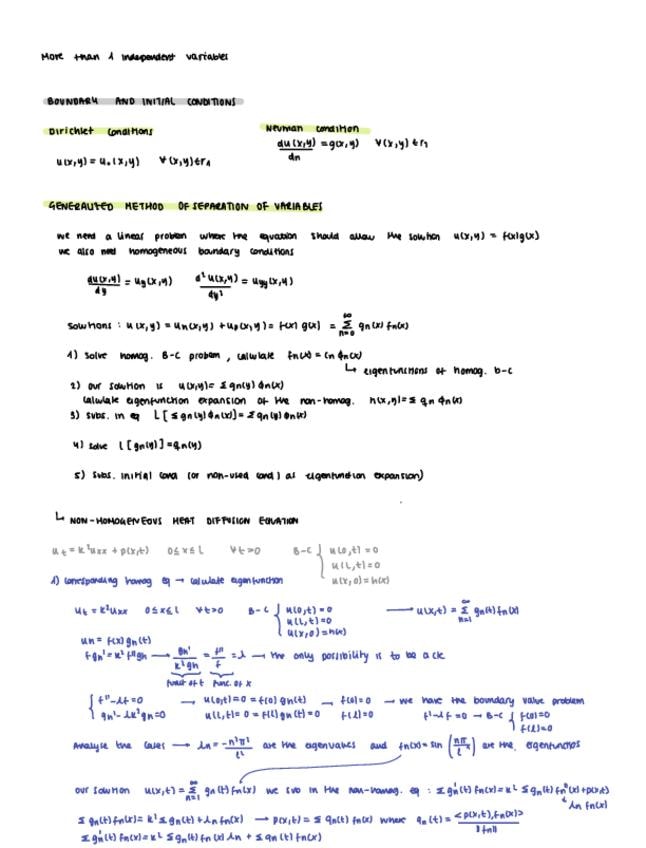 More than 1 independent variables
BOUNDARY AND INITIAL CONDITIONS
Dirichlet conditions
u(x,y) = u₀(x,y) ∀(x,y)∈Γ₁
Neuman condition
du(x,y)/dn = g(x,y) ∀(x,y)∈Γ₁
GENERALITED METHOD OF SEPARATION OF VARIABLES
we need a linear problem where the equation should allow the solution u(x,y) = f(x)g(x)
we also need homogeneous boundary conditions
du(x,y)/dy = uy(x,y) d²u(x,y)/dy² = uyy(x,y)
Solutions : u(x,y) = un(x,y) + up(x,y) = f(x) g(x) = ∞Σn=0 gn(x) fn(x)
1) Solve homog. B-C problem, calculate fn(x) = cn ϕn(x)
↳ eigenfunctions of homog. b-c
2) our solution is u(x,y) = Σ gn(y) ϕn(x)
calculate eigenfunction expansion of the non-homog. h(x,y) = Σ qn ϕn(x)
3) subs. in eq L[Σ gn(y) ϕn(x)] = Σ qn(y) ϕn(x)
4) solve L[gn(y)] = qn(y)
5) subs. initial cond (or non-used cond) as eigenfunction expansion)
↳ NON-HOMOGENEOUS HEAT DIFFUSION EQUATION
ut = k²uxx + p(x,t) 0≤x≤L ∀t>0 B-C { u(0,t) = 0
u(L,t) = 0
u(x,0) = h(x)
1) corresponding homog eq → calculate eigenfunction
ut = k²uxx 0≤x≤L ∀t>0 B-C { u(0,t) = 0 → u(x,t) = ∞Σn=1 gn(t) fn(x)
u(L,t) = 0
u(x,0) = h(x)
un = f(x) gn(t)
f gn' = k² f'' gn → gn'/k²gn = f''/f = λ → the only possibility is to be a ck
funct of t func. of x
{ f'' - λf = 0 → u(0,t) = 0 = f(0) gn(t) → f(0) = 0 → we have the boundary value problem
gn' - λk²gn = 0 u(L,t) = 0 = f(L) gn(t) = 0 f(L) = 0 f' - λf = 0 → B-C { f(0) = 0
f(L) = 0
Analyse the cases → λn = -n²π²/L² are the eigenvalues and fn(x) = sin(nπ/L x) are the eigenfunctios
our solution u(x,t) = ∞Σn=1 gn(t) fn(x) we sub in the non-homog. eq : Σ gn'(t) fn(x) = k² Σ gn(t) fn''(x) + p(x,t)
λn fn(x)
Σ gn(t) fn(x) = k² Σ gn(t) + λn fn(x) → p(x,t) = Σ qn(t) fn(x) where qn(t) = <p(x,t), fn(x)>/‖fn‖
Σ gn'(t) fn(x) = k² Σ gn(t) fn(x) λn + Σ qn(t) fn(x)